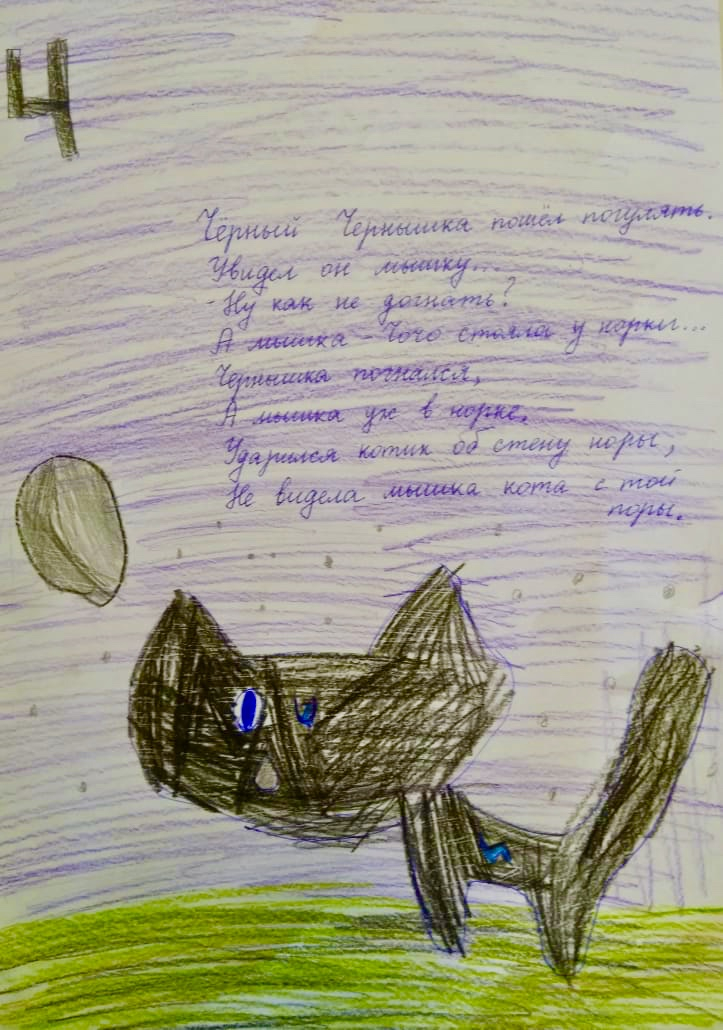 Ч
Чёрный Чернышка пошёл погулять.
Увидел он мышку...
- Ну как не догнать?
А мышка - Чочо стояла у норки...
Чернышка погнался,
А мышка уж в норке.
Ударился котик об стену норы,
Не видела мышка кота с той
поры.